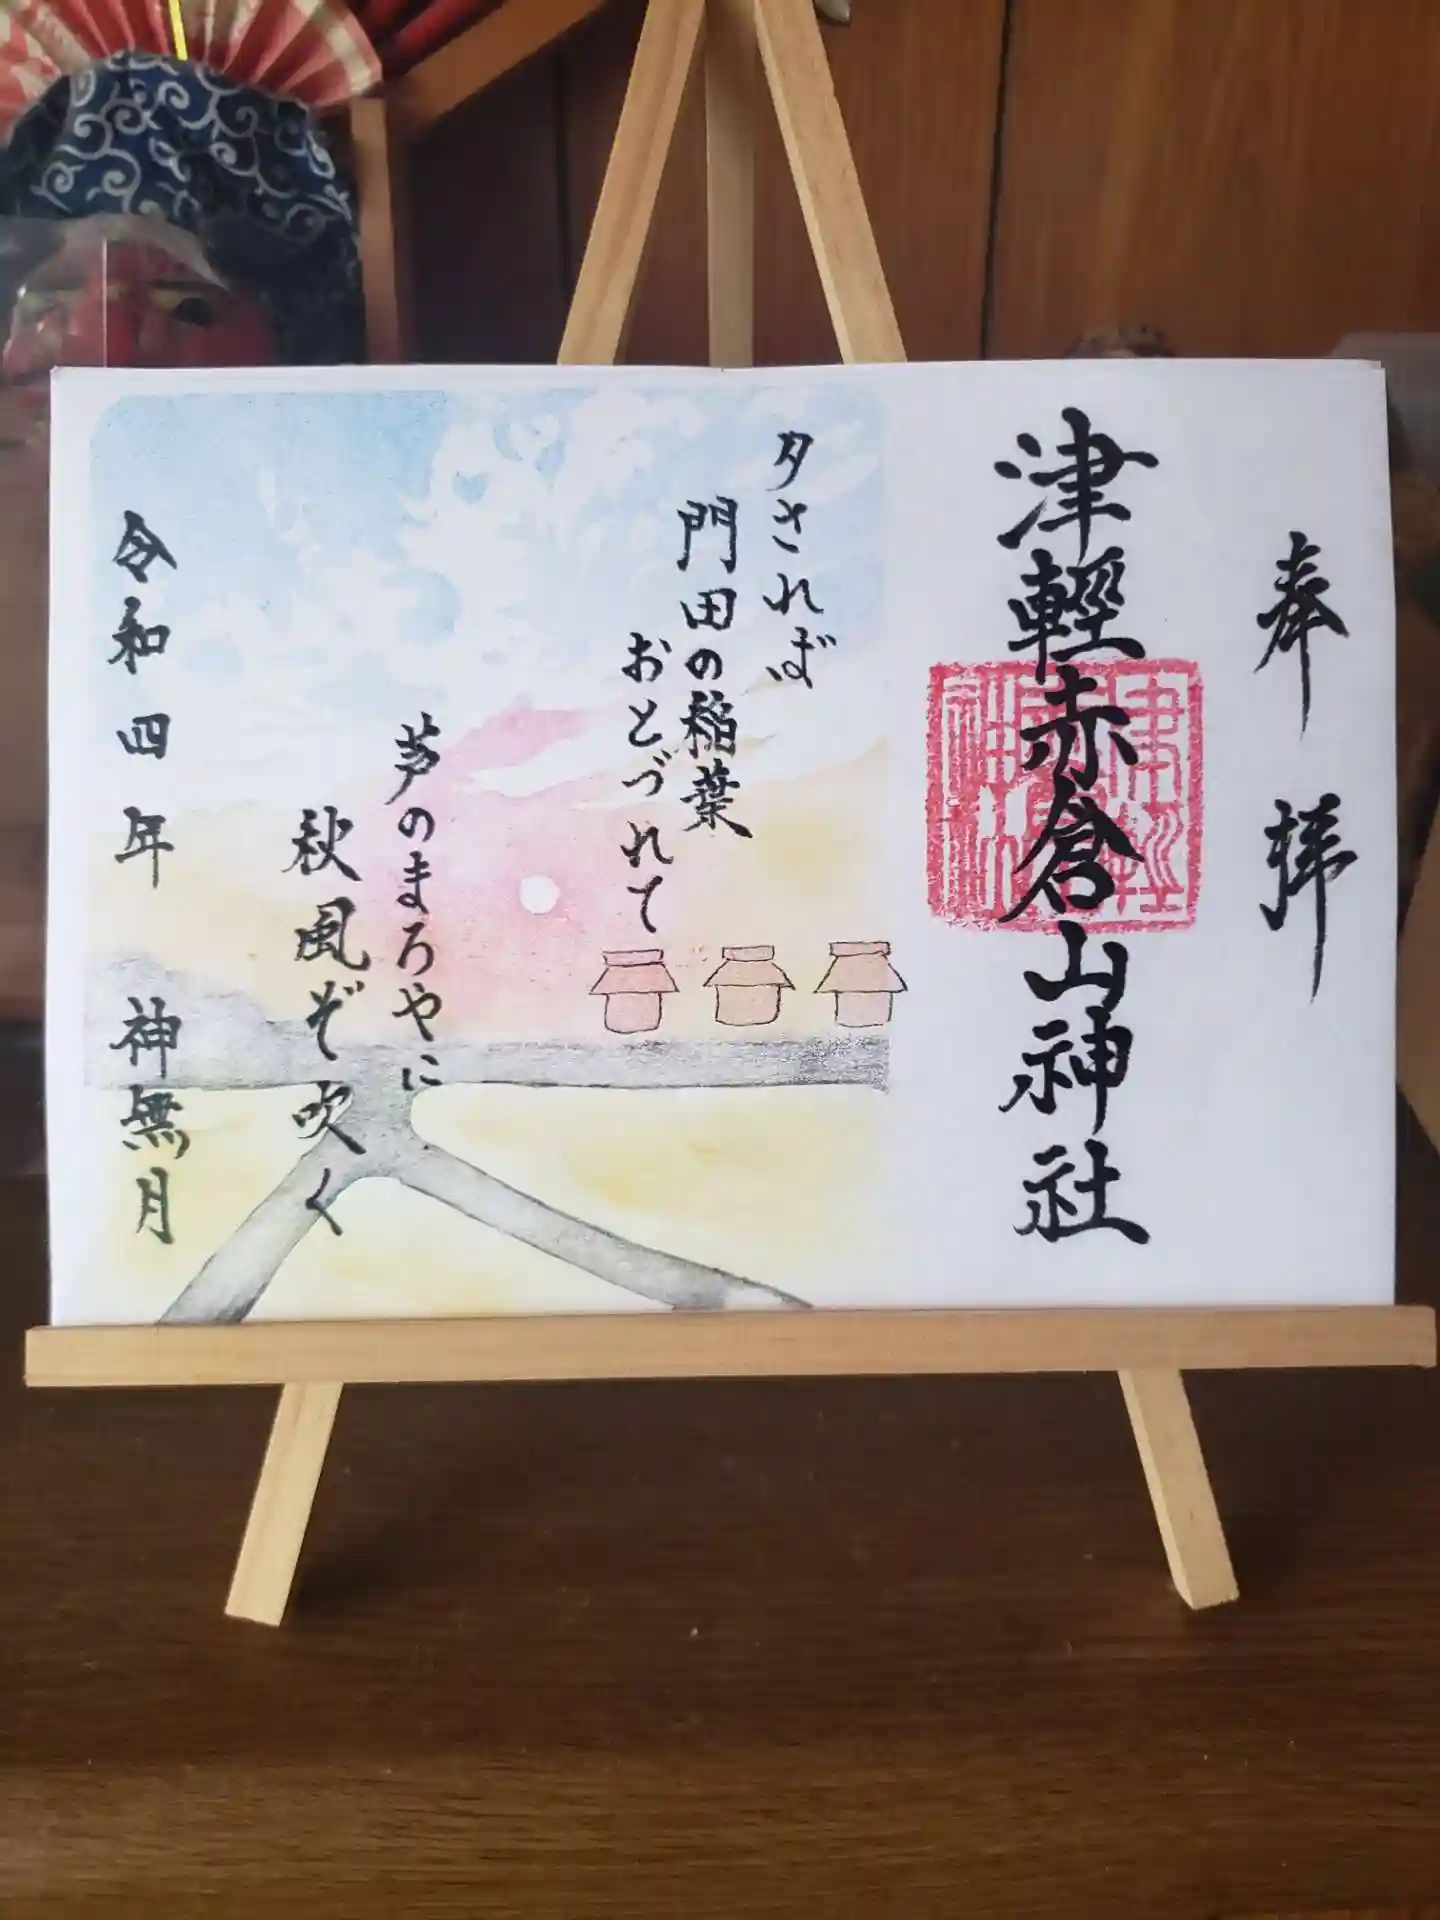 奉拝
津輕赤倉山神社
夕されば
門田の稲葉
おとづれて
芦のまろやに
秋風ぞ吹く
令和四年 神無月